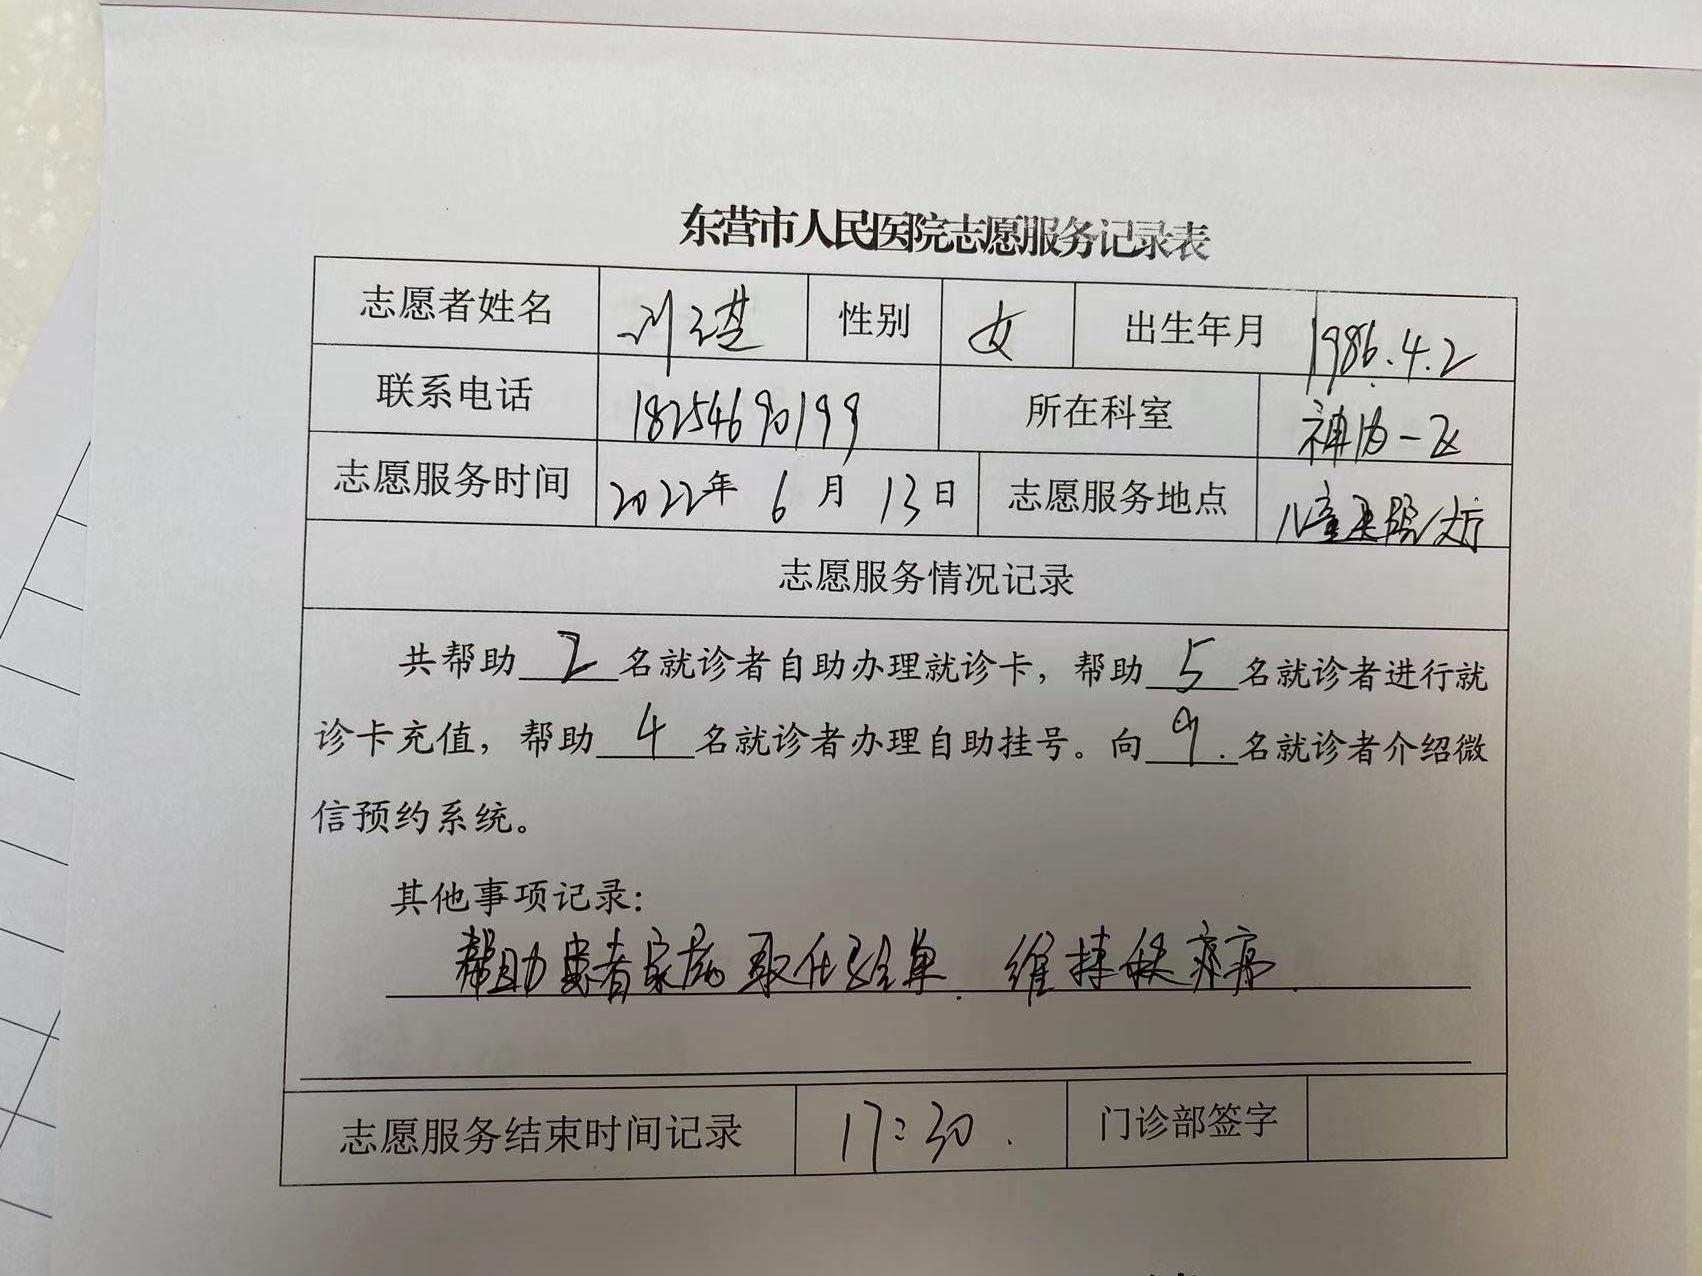 东营市人民医院志愿服务记录表
志愿者姓名 刘 性别 女 出生年月 1986.4.2
联系电话 18254690199 所在科室 神内一区
志愿服务时间 2022年 6 月 13日 志愿服务地点 儿童医院大厅
志愿服务情况记录
共帮助 2 名就诊者自助办理就诊卡，帮助 5 名就诊者进行就
诊卡充值，帮助 4 名就诊者办理自助挂号。向 9. 名就诊者介绍微
信预约系统。
其他事项记录：
帮助患者家属取化验单. 维持秩序.
志愿服务结束时间记录 17:30. 门诊部签字